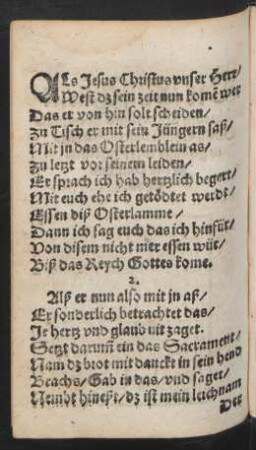 ALs Jesus Christus vnser Herr/
West dz sein zeit nun komẽ wer
Das er von hin solt scheiden/
zu Tisch er mit sein Jüngern saß/
Mit jn das Osterlemblein as/
zu letzt vor seinem leiden/
Er sprach ich hab hertzlich begert/
Mit euch ehe ich getödtet werdt/
Essen diß Osterlamme/
Dann ich sag euch das ich hinfür/
Von disem nicht mer essen wür/
Biß das Reych Gottes kome.
2.
Alß er nun also mit jn aß/
Er sonderlich betrachtet das/
Jr hertz vnd glaub nit zaget.
Setzt darum̃ ein das Sacrament/
Nam dz brot mit danckt in sein hend
Brachs/ Gab in das/ vnd saget/
Nembt hin eßt/ dz ist mein leichnam
Der